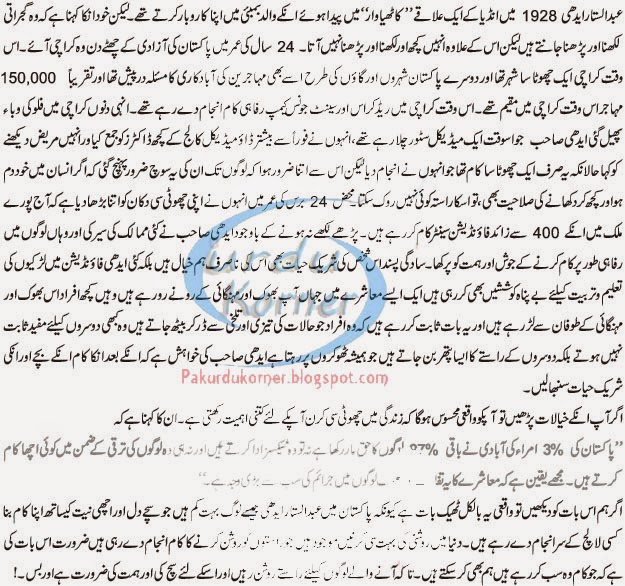 عبدالستار ایدھی 1928 میں انڈیا کے ایک علاقے ”کاٹھیاوار“ میں پیدا ہوئے انکے والد بمبئی میں اپنا کاروبار کرتے تھے۔ لیکن خود انکا کہنا ہے کہ وہ گجراتی
لکھنا اور پڑھنا جانتے ہیں لیکن اس کے علاوہ انہیں کچھ اور لکھنا اور پڑھنا نہیں آتا۔ 24 سال کی عمر میں پاکستان کی آزادی کے چھٹے دن وہ کراچی آئے۔ اس
وقت کراچی ایک چھوٹا سا شہر تھا اور دوسرے پاکستان شہروں اور گاؤں کی طرح اسے بھی مہاجرین کی آبادکاری کا مسئلہ درپیش تھا اور تقریباً 150,000
مہاجر اس وقت کراچی میں مقیم تھے۔ اس وقت کراچی میں ریڈ کراس اور سینٹ جونس کیمپ رفاہی کام انجام دے رہے تھے۔ انہی دنوں کراچی میں فلو کی وباء
پھیل گئی ایدھی صاحب جو اسوقت ایک میڈیکل سٹور چلا رہے تھے، انہوں نے فوراً سے بیشتر ڈاؤ میڈیکل کالج کے کچھ ڈاکٹرز کو جمع کیا اور انہیں مریض دیکھنے
کو کہا حالانکہ یہ صرف ایک چھوٹا سا کام تھا جو انہوں نے انجام دیا لیکن اس سے اتنا ضرور ہوا کہ لوگوں تک ان کی یہ سوچ ضرور پہنچ گئی کہ اگر انسان میں خود دم
ہو اور کچھ کر دکھانے کی صلاحیت بھی، تو اسکا راستہ کوئی نہیں روک سکتا۔ محض 24 برس کی عمر میں انہوں نے اپنی چھوٹی سی دکان کو اتنا بڑھا دیا ہے کہ آج پورے
ملک میں انکے 400 سے زائد فاؤنڈیشن سینٹر کام کر رہے ہیں۔ پڑھے لکھے نہ ہونے کے باوجود ایدھی صاحب نے کئی ممالک کی سیر کی اور وہاں لوگوں میں
رفاہی طور پر کام کرنے کے جوش اور ہمت کو پرکھا۔ سادگی پسند اس شخص کی شریک حیات بھی اس کی نا صرف ہم خیال ہیں بلکہ کئی ایدھی فاؤنڈیشن میں لڑکیوں کی
تعلیم و تربیت کیلئے بے پناہ کوششیں بھی کر رہی ہیں ایک ایسے معاشرے میں جہاں آپ بھوک اور مہنگائی کے رونے رو رہے ہیں وہیں کچھ افراد اس بھوک اور
مہنگائی کے طوفان سے لڑ رہے ہیں اور یہ بات ثابت کر رہے ہیں کہ وہ افراد جو حالات کی تیزی اور تلخی سے ڈر کر بیٹھ جاتے ہیں وہ کبھی دوسروں کیلئے مفید ثابت
نہیں ہوتے بلکہ دوسروں کے راستے کا ایسا پتھر بن جاتے ہیں جو ہمیشہ ٹھوکروں پر رہتا ہے ایدھی صاحب کی خواہش ہے کہ انکے بعد انکا کام انکے بچے اور انکی
شریک حیات سنبھالیں۔
Urdu Korner
Pakurdukorner.blogspot.com
اگر آپ انکے خیالات پڑھیں تو آپکو واقعی محسوس ہوگا کہ زندگی میں چھوٹی سی کرن آپکے لئے کتنی اہمیت رکھتی ہے۔ ان کا کہنا ہے کہ
”پاکستان کی 3% امراء کی آبادی نے باقی 97% لوگوں کا حق مار رکھا ہے نہ تو وہ ٹیکسز ادا کرتے ہیں اور نہ ہی وہ لوگوں کی ترقی کے ضمن میں کوئی اچھا کام
کرتے ہیں۔ مجھے یقین ہے کہ معاشرے کا یہ لوگوں میں جرائم کی سب سے بڑی وجہ ہے۔“
اگر ہم اس بات کو دیکھیں تو واقعی یہ بالکل ٹھیک بات ہے کیونکہ پاکستان میں عبدالستار ایدھی جیسے لوگ بہت کم ہیں جو سچے دل اور اچھی نیت کیساتھ اپنا کام بنا
کسی لالچ کے سرانجام دے رہے ہیں۔ دنیا میں روشنی کی بہت سی کرنیں موجود ہیں جو راستوں کو روشن کرنے کا کام انجام دے رہی ہیں ضرورت اس بات کی
ہے کہ جو کام وہ سب کر رہے ہیں ہم بھی کر سکتے ہیں۔ تاکہ آنے والے لوگوں کیلئے راستے روشن رہیں اور اسکے لئے سچ کی اور ہمت کی ضرورت ہے اور بس۔!